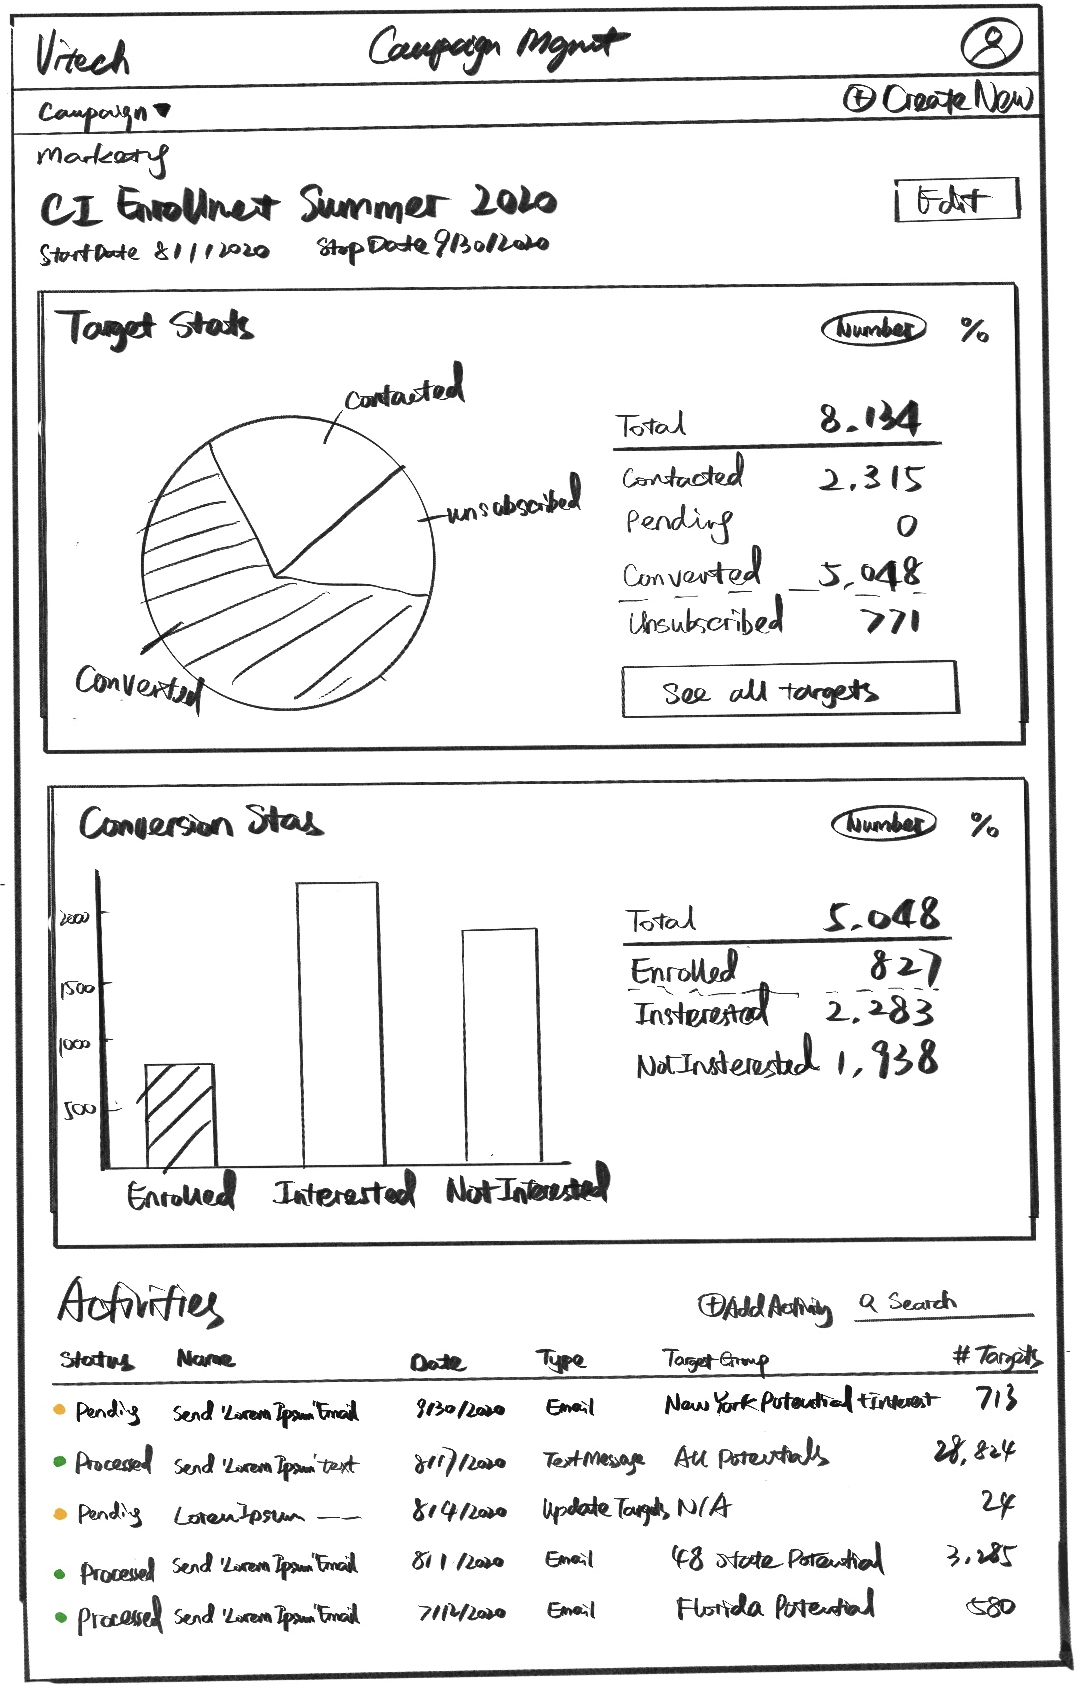 Vitech
Campaign Mgmt
Campaign
Create New
Markety
CI Enrollnet Summer 2020
Edit
Start Date 8/1/2020 Stop Date 9/30/2020
Target Stats
Number %
contacted
unsubscribed
Converted
Total 8.134
Contacted 2.315
Pending 0
Converted 5,048
Unsubscribed 771
See all targets
Conversion Stas
Number %
2000
1500
1000
500
Enrolled Interested Not Interested
Total 5.048
Enrolled 827
Insterested 2.283
Not Insterested 1,938
Activities
Add Activity Search
Status Name Date Type Target Group # Targets
Pending Send 'Lorem Ipsum' Email 9/30/2020 Email New York Potential + Interest 713
Processed Send 'Lorem Ipsum' text 8/17/2020 Text Message All Potentials 28,824
Pending Lorem Ipsum 8/4/2020 Update Targets N/A 24
Processed Send 'Lorem Ipsum' Email 8/1/2020 Email 48 State Potential 3,285
Processed Send 'Lorem Ipsum' Email 7/12/2020 Email Florida Potential 580